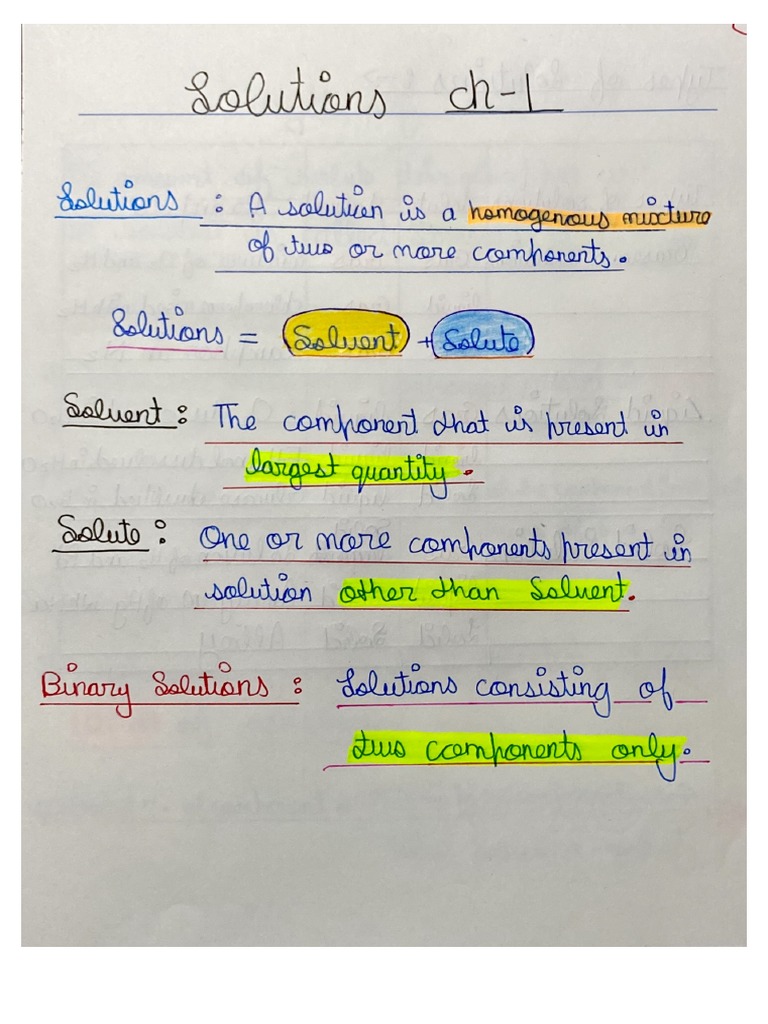 Solutions ch-1
Solutions : A solution is a homogenous mixture
of two or more components.
Solutions = Solvent + Solute
Solvent : The component that is present in
largest quantity.
Solute : One or more components present in
solution other than Solvent.
Binary Solutions : Solutions consisting of
two components only.